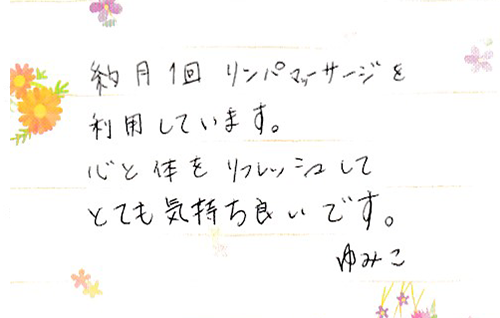 約月1回 リンパマッサージを
利用しています。
心と体をリフレッシュして
とても気持ち良いです。
ゆみこ